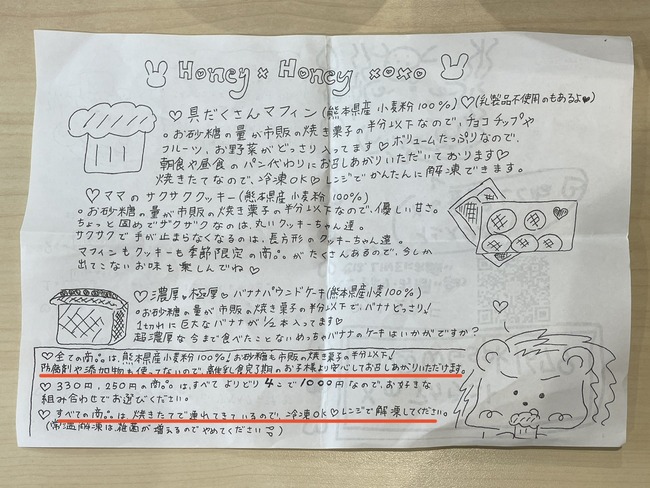 Honey × Honey xoxo
♡具だくさんマフィン(熊本県産 小麦粉 100%)♡(乳製品不使用のもあるよ♥)
。お砂糖の量が市販の焼き菓子の半分以下なので、チョコチップや
フルーツ、お野菜がどっさり入ってます♡ボリュームたっぷりなので、
朝食や昼食のパン代わりにお召しあがりいただいております♡
焼きたてなので、冷凍OK♡レンジでかんたんに解凍できます。
♡ママのサクサククッキー(熊本県産 小麦粉 100%)
。お砂糖の量が市販の焼き菓子の半分以下なので、優しい甘さ。
ちょっと固めでザクザクなのは、丸いクッキーちゃん達。
サクサクで手が止まらなくなるのは、長方形のクッキーちゃん達。
マフィンもクッキーも季節限定の商品がたくさんあるので、今しか
出てこないお味を楽しんでね♡
♡濃厚♥極厚♥バナナパウンドケーキ(熊本県産小麦100%)
。お砂糖の量が市販の焼き菓子の半分以下で、バナナどっさり!
1切れに巨大なバナナが1/2本入ってます♡
超濃厚な今まで食べたことないめっちゃバナナのケーキはいかがですか?
♡全ての商品は、熊本県産小麦粉100%!お砂糖も市販の焼き菓子の半分以下!
防腐剤や添加物も使ってないので、離乳食完了期のお子様より安心してお召しあがりいただけます。
♡330円、250円の商品はすべてよりどり4こで1000円なので、お好きな
組み合わせでお選びください。
♡すべての商品は、焼きたてで連れてきているので、冷凍OK♡レンジで解凍してください。
(常温解凍は雑菌が増えるのでやめてください)